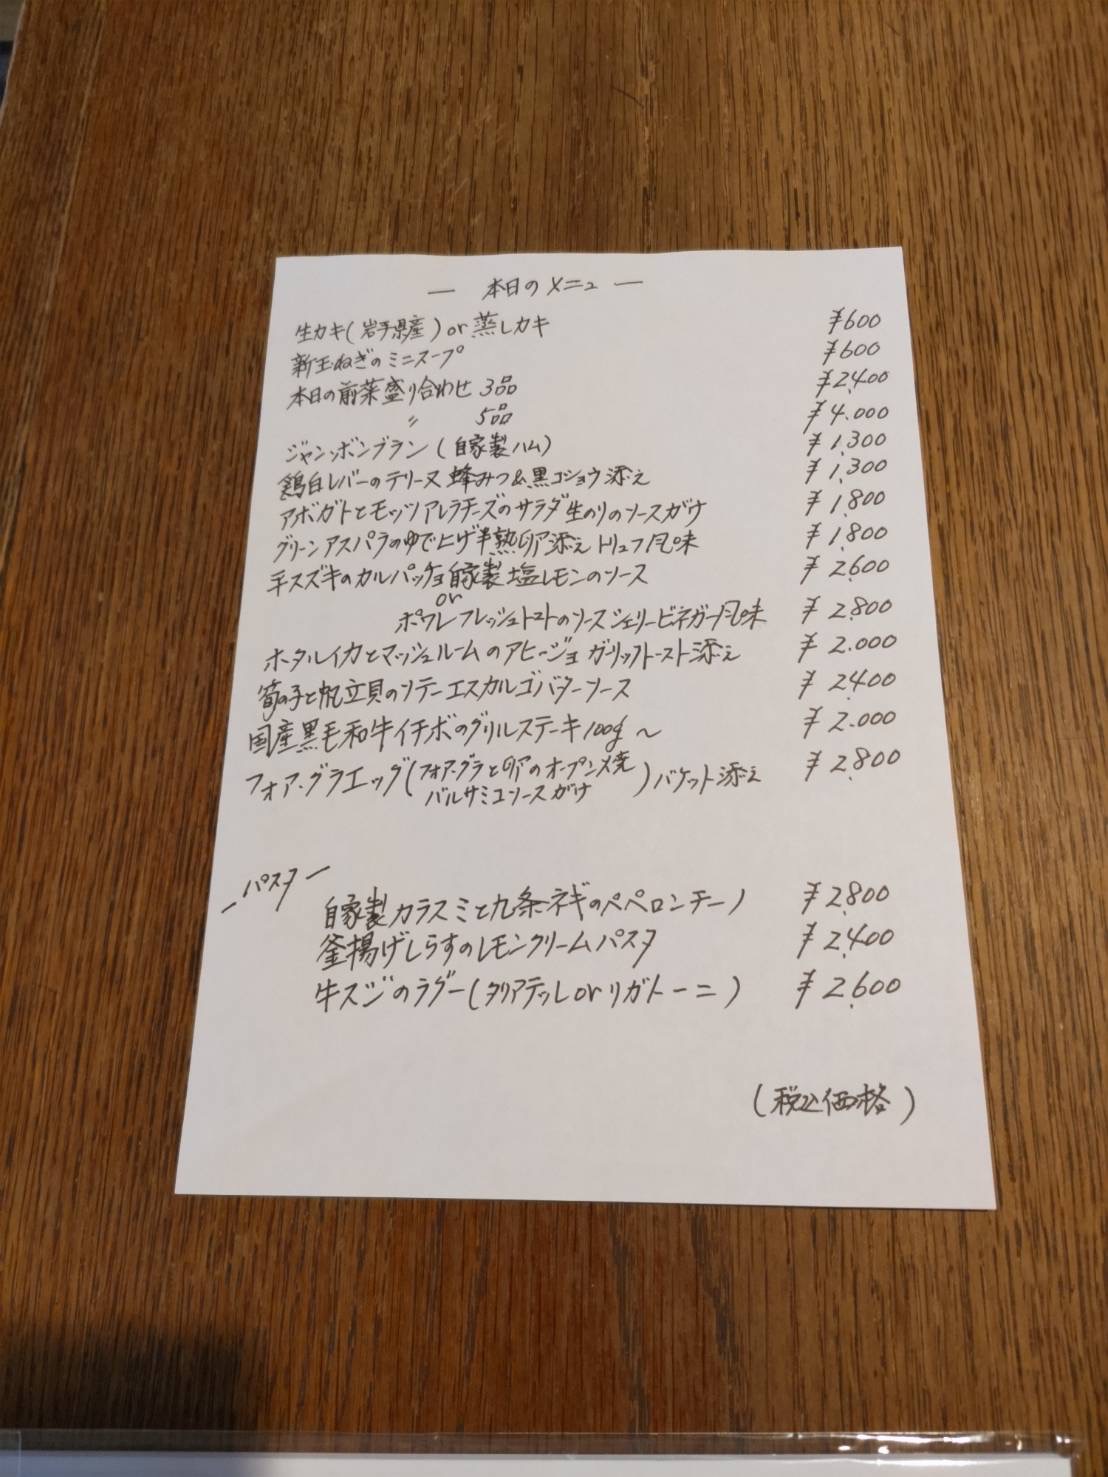 ― 本日のメニュー ―
生カキ(岩手県産)or 蒸しカキ ¥600
新玉ねぎのミニスープ ¥600
本日の前菜盛り合わせ 3品 ¥2.400
〃 5品 ¥4.000
ジャンボンブラン(自家製ハム) ¥1.300
鶏白レバーのテリーヌ 蜂みつ&黒コショウ添え ¥1.300
アボガドとモッツアレラチーズのサラダ 生のりのソースがけ ¥1.800
グリーンアスパラのゆで上げ半熟卵添え トリュフ風味 ¥1.800
平スズキのカルパッチョ自家製塩レモンのソース ¥2.600
or
ポワレフレッシュトマトのソースシェリービネガー風味 ¥2.800
ホタルイカとマッシュルームのアヒージョ ガーリックトースト添え ¥2.000
筍の子と帆立貝のソテーエスカルゴバターソース ¥2400
国産黒毛和牛イチボのグリルステーキ100g〜 ¥2.000
フォア・グラエッグ(フォア・グラと卵のオーブン焼 バルサミコソースがけ)バケット添え ¥2.800
―パスタ―
自家製カラスミと九条ネギのペペロンチーノ ¥2.800
釜揚げしらすのレモンクリームパスタ ¥2.400
牛スジのラグー(タリアテッレorリガトーニ) ¥2.600
(税込価格)